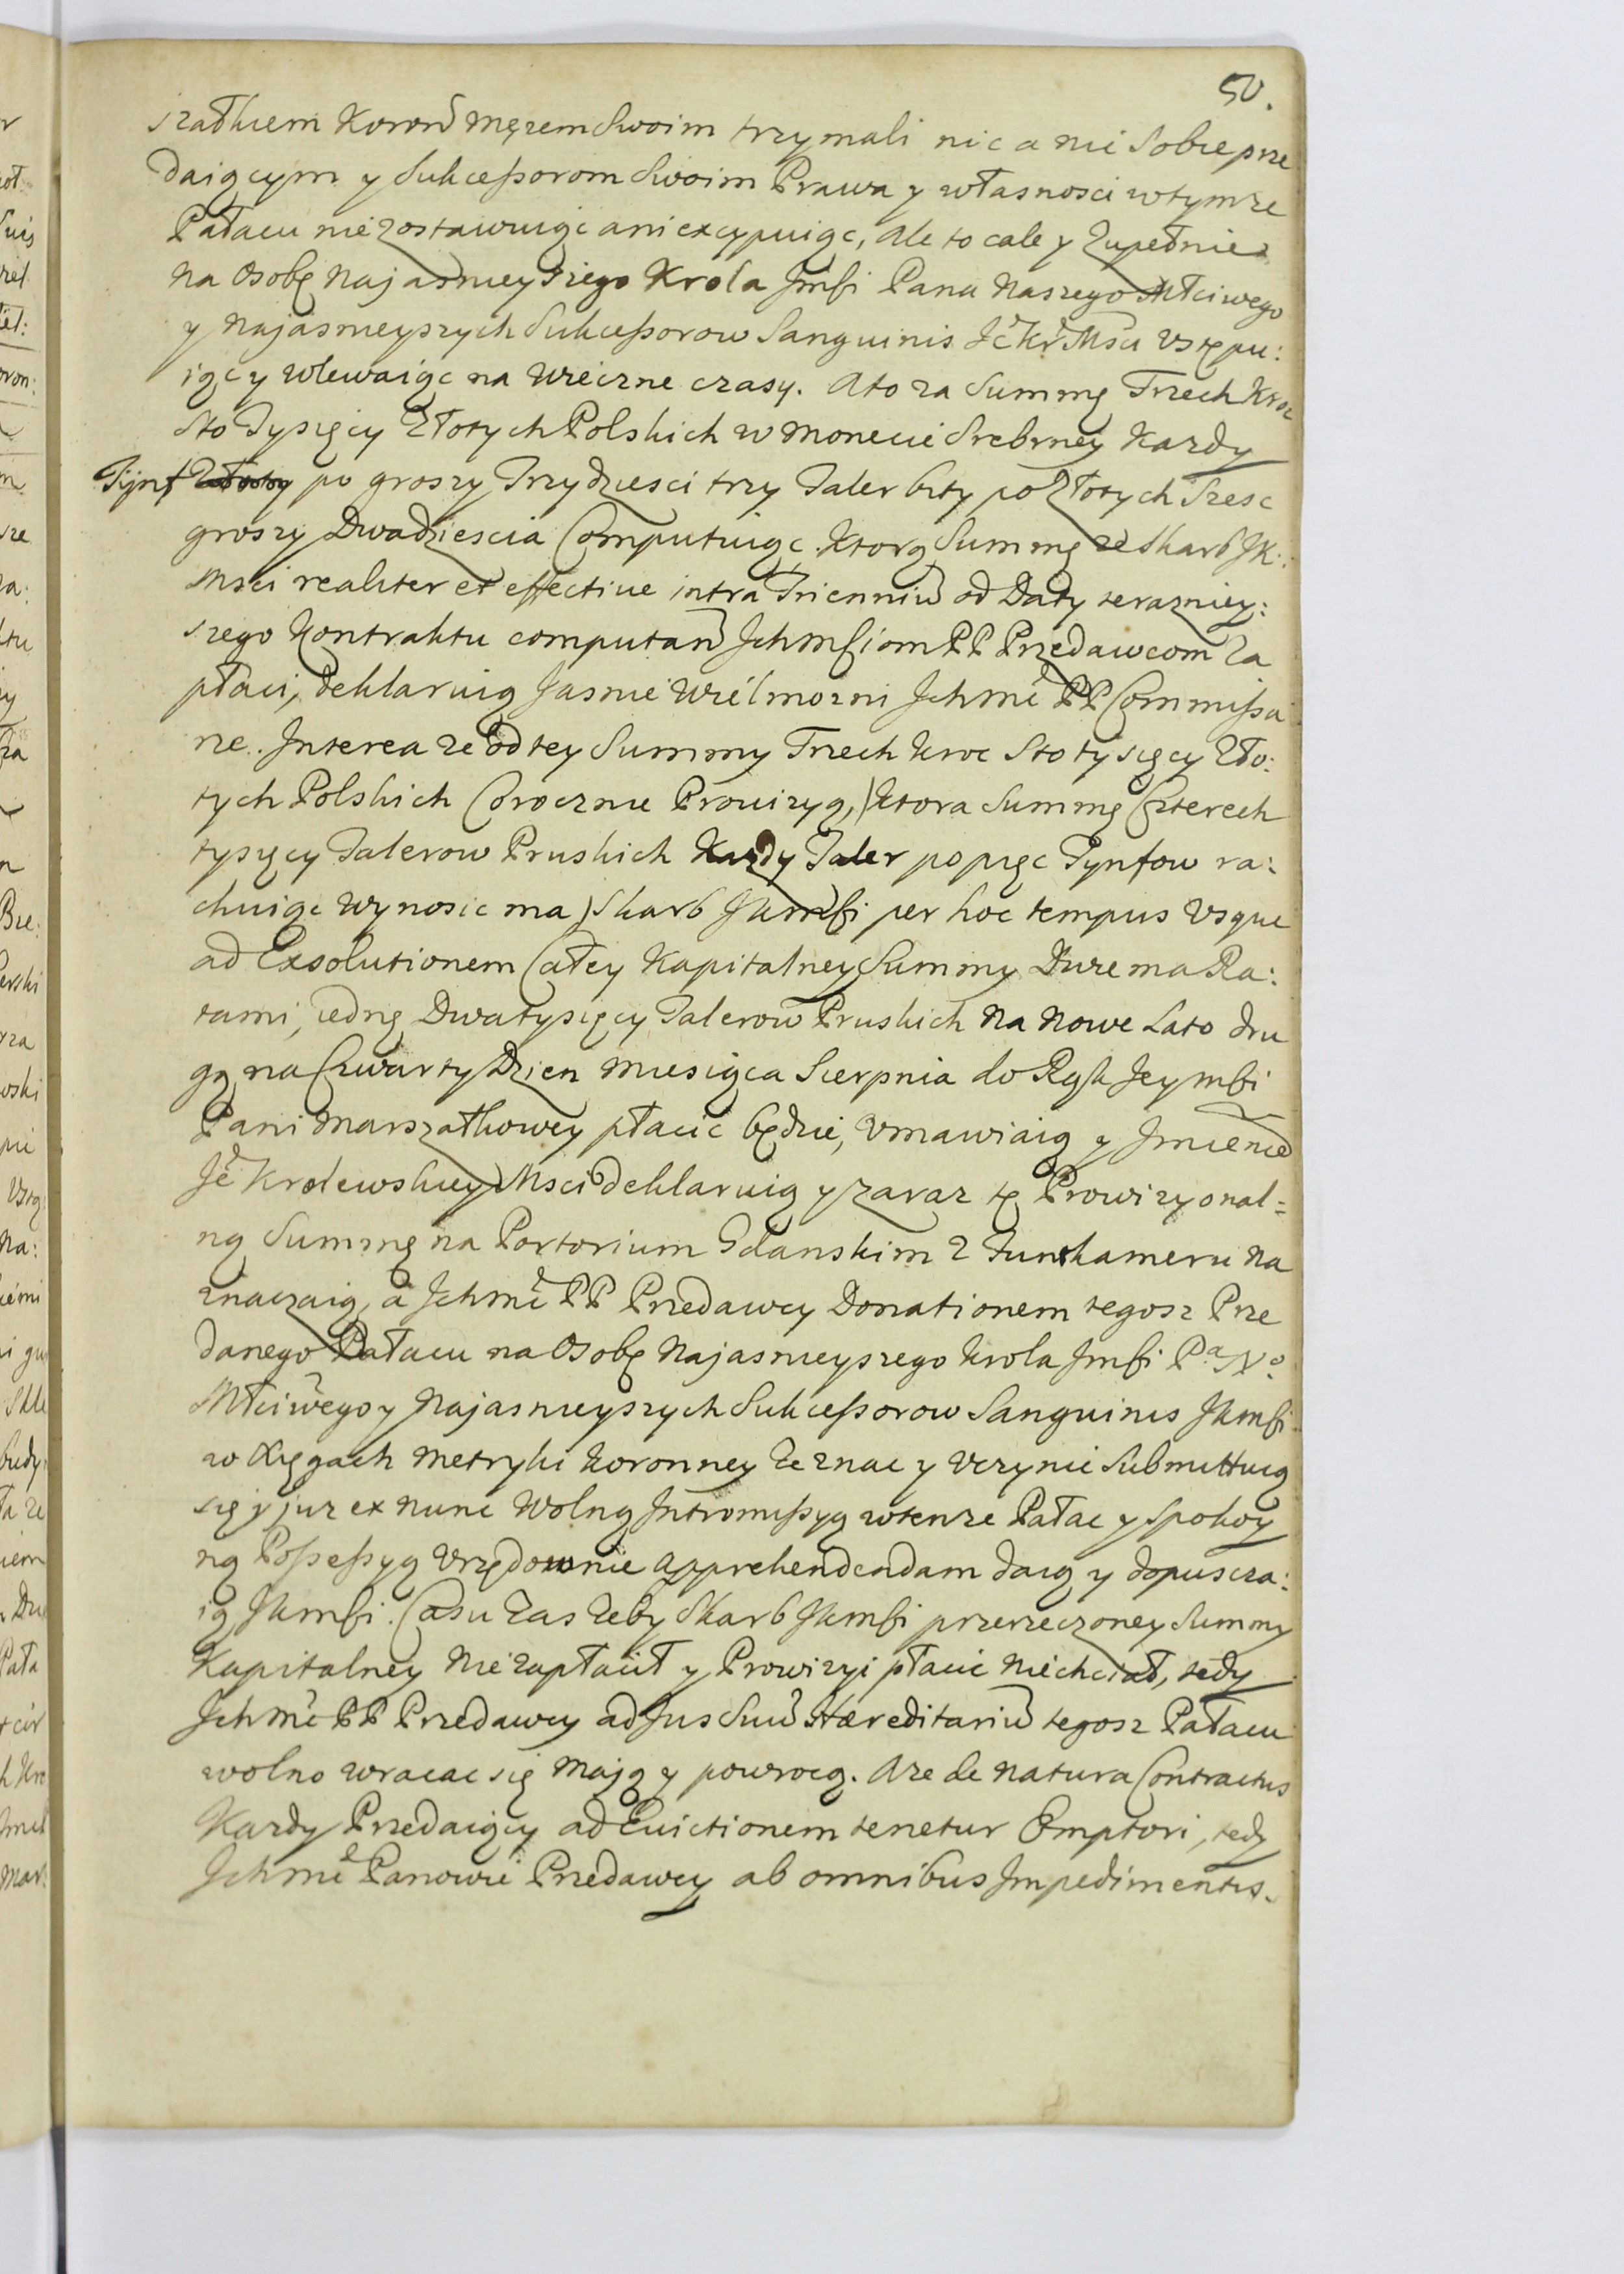 50.
szałkiem Koronm Mężem Swoim trzymali nic a nic Sobie prze
daiącym y Sukceßorom Swoim Prawa y własnosci w tymze
Pałacu nie zostawuiąc ani excypuiąc, ale to cale y Zupełnie
na Osobę Najasnieyszego Krola Jmśći Pana Naszego Młciwego
y Najasnieyszych Sukceßorow Sanguinis Je͠ Kr͠ Msci Ustępu:
iąc y wlewaiąc na wieczne czasy. A to za Summę Trzech Kroc
Sto Tysięcy Złotych Polskich w Monecie Srebrney Kazdy
Tijnf Złotoy po groszy Trzydziesci trzy Taler bity po Złotych Szesc
groszy Dwadziescia Computuiąc. Ktorą Summę ze Skarb JK:
Msci realiter et effective intra Trienniu͠ od Daty terazniey:
szego Kontraktu computan͠ Jchmśćiom PP Przedawcom Za
płaci, deklaruią Jasnie Wielmozni Jchmć PP Commißa
rze. Interea ze od tey Summy Trzech kroc Sto tysięcy Zło:
tych Polskich Coroczne Prowizyą, (ktora Summę Czterech
tysięcy Talerow Pruskich Kazdy Taler po pięc Tynfow ra:
chuiąc wynosic ma) Skarb JKmśći per hoc tempus Usque
ad Exsolutionem Całey Kapitalney Summy Dwiema Ra:
tami, iedną Dwa tysięcy Talerow Pruskich Na Nowe Lato dru
gą na Czwarty Dzien Miesiąca Sierpnia do Rąk Jeymśći
Pani Marszałkowey płacic będzie, Umawiaią y Jmieniem
Je͠ Krolewskiey Msci deklaruią y zaraz tę Prowizyonal=
ną Summę na Portorium Gdanskim z Funkameru na
znaczaią, a Jchmć PP Przedawcy Donationem tegosz Prze
danego Pałacu na Osobę Najasnieyszego Krola Jmśći Pa No
Młciwego y Najasnieyszych Sukceßorow Sanguinis JKmśći
w Xięgach Metryki Koronney Zeznac y Uczynic Submittuią
się y juz ex nunc Wolną Intromißyą w tenze Pałac y Spokoy
ną Poßeßyą Urzędownie apprehendendam daią y dopuscza:
ią JKmśći. Casu Zas Zeby Skarb JKmśći przerzeczoney Summy
Kapitalney Nie zapłacił y Prowizyi płacic niechciał, tedy
Jchmć PP Przedawcy ad Jus Suu͠ Hæreditariu͠ tegosz Pałacu
wolno wracac się Mają y powrocą. A ze de natura Contractus
Kazdy Przedaiący ad Evictionem tenetur Emptori, tedy
Jchmć Panowie Przedawcy ab omnibus Impedimentis.